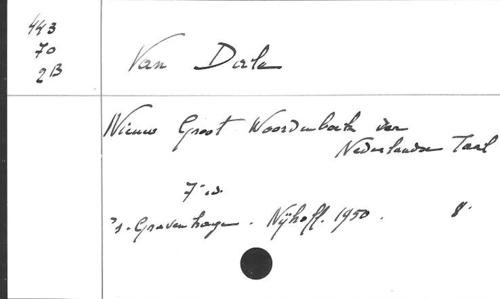 443
70
2B
Van Dale
Nieuw Groot Woordenboek der
Nederlandse Taal
7e ed.
's-Gravenhage. Nijhoff. 1950. 8°